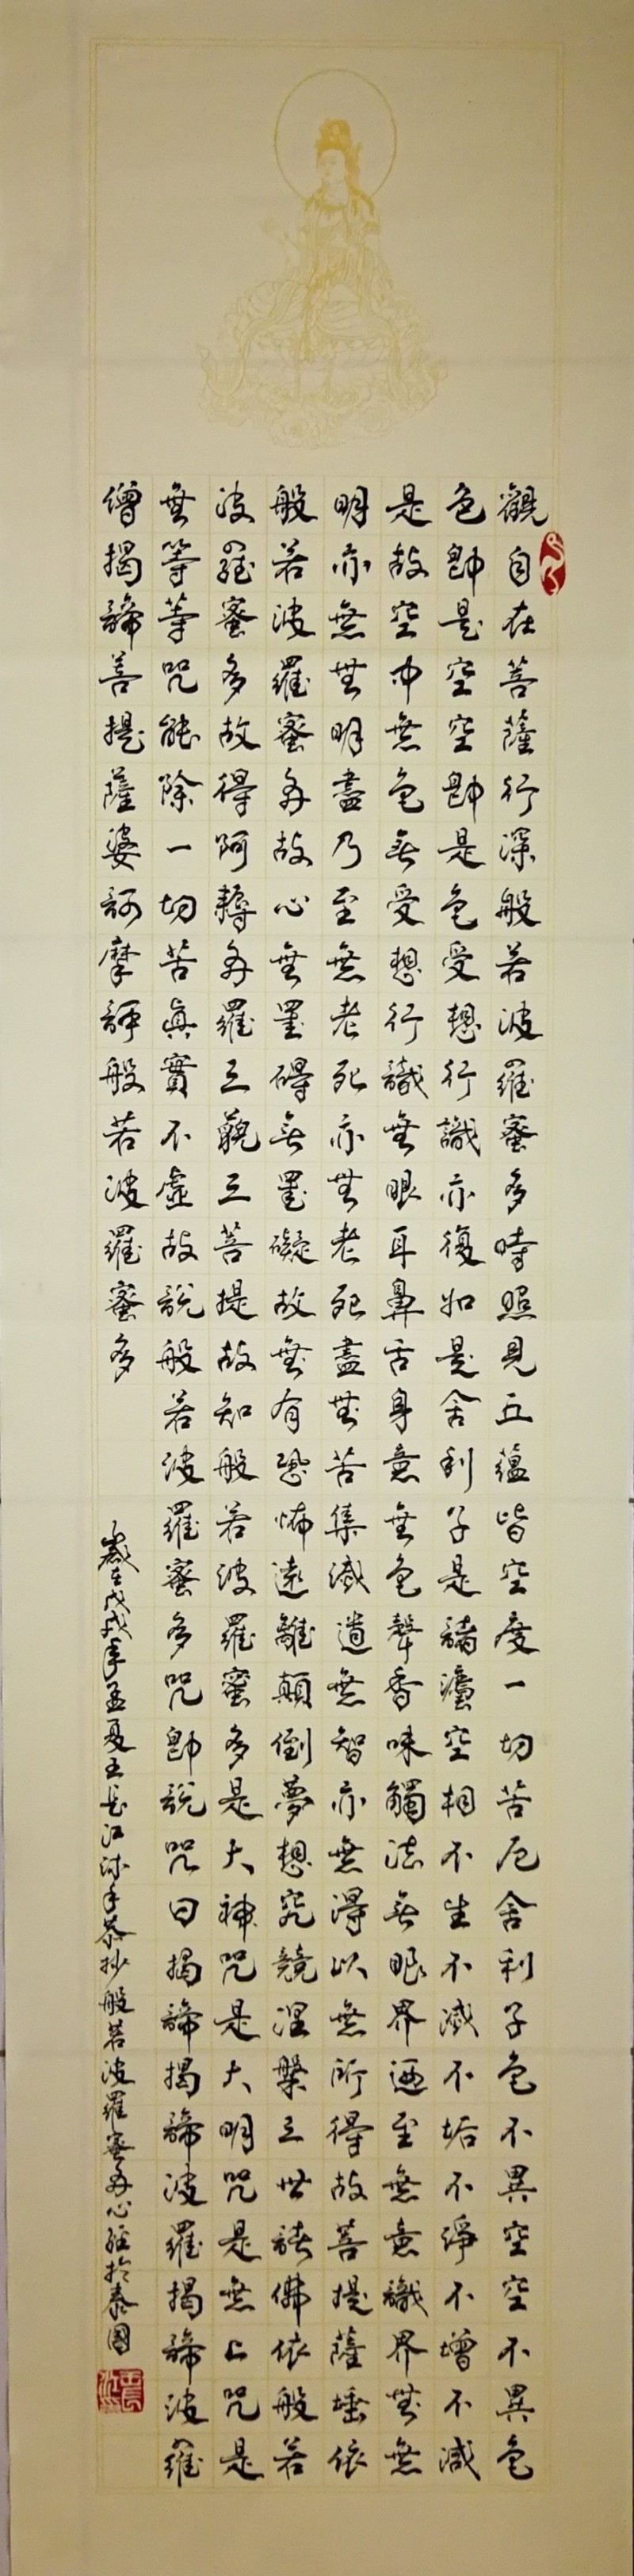 觀自在菩薩行深般若波羅蜜多時照見五蘊皆空度一切苦厄舍利子色不異空空不異色
色卽是空空卽是色受想行識亦復如是舍利子是諸灋空相不生不滅不垢不淨不增不減
是故空中無色無受想行識無眼耳鼻舌身意無色聲香味觸法無眼界迺至無意識界無無
明亦無無明盡乃至無老死亦無老死盡無苦集滅道無智亦無得以無所得故菩提薩埵依
般若波羅蜜多故心無罣碍無罣礙故無有恐怖遠離顛倒夢想究竟涅槃三世諸佛依般若
波羅蜜多故得阿耨多羅三藐三菩提故知般若波羅蜜多是大神咒是大明咒是無上咒是
無等等咒能除一切苦真實不虛故說般若波羅蜜多咒卽說咒曰揭諦揭諦波羅揭諦波羅
僧揭諦菩提薩婆訶摩訶般若波羅蜜多
歲在戊戌年孟夏王長江沐手恭抄般若波羅蜜多心經於泰國